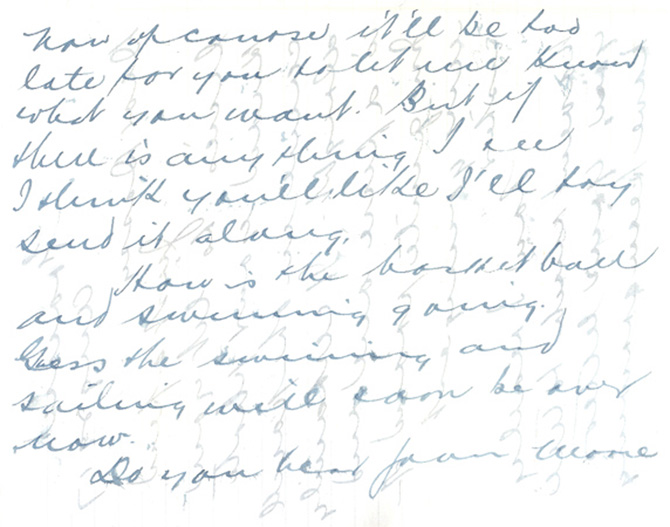 Now of course it'll be too
late for you to let me know
what you want. But if
there is anything I see
I think you'll like I'll try
send it along.
How is the basket ball
and swimming going.
Guess the swimming and
sailing will soon be over
now.
Do you hear from